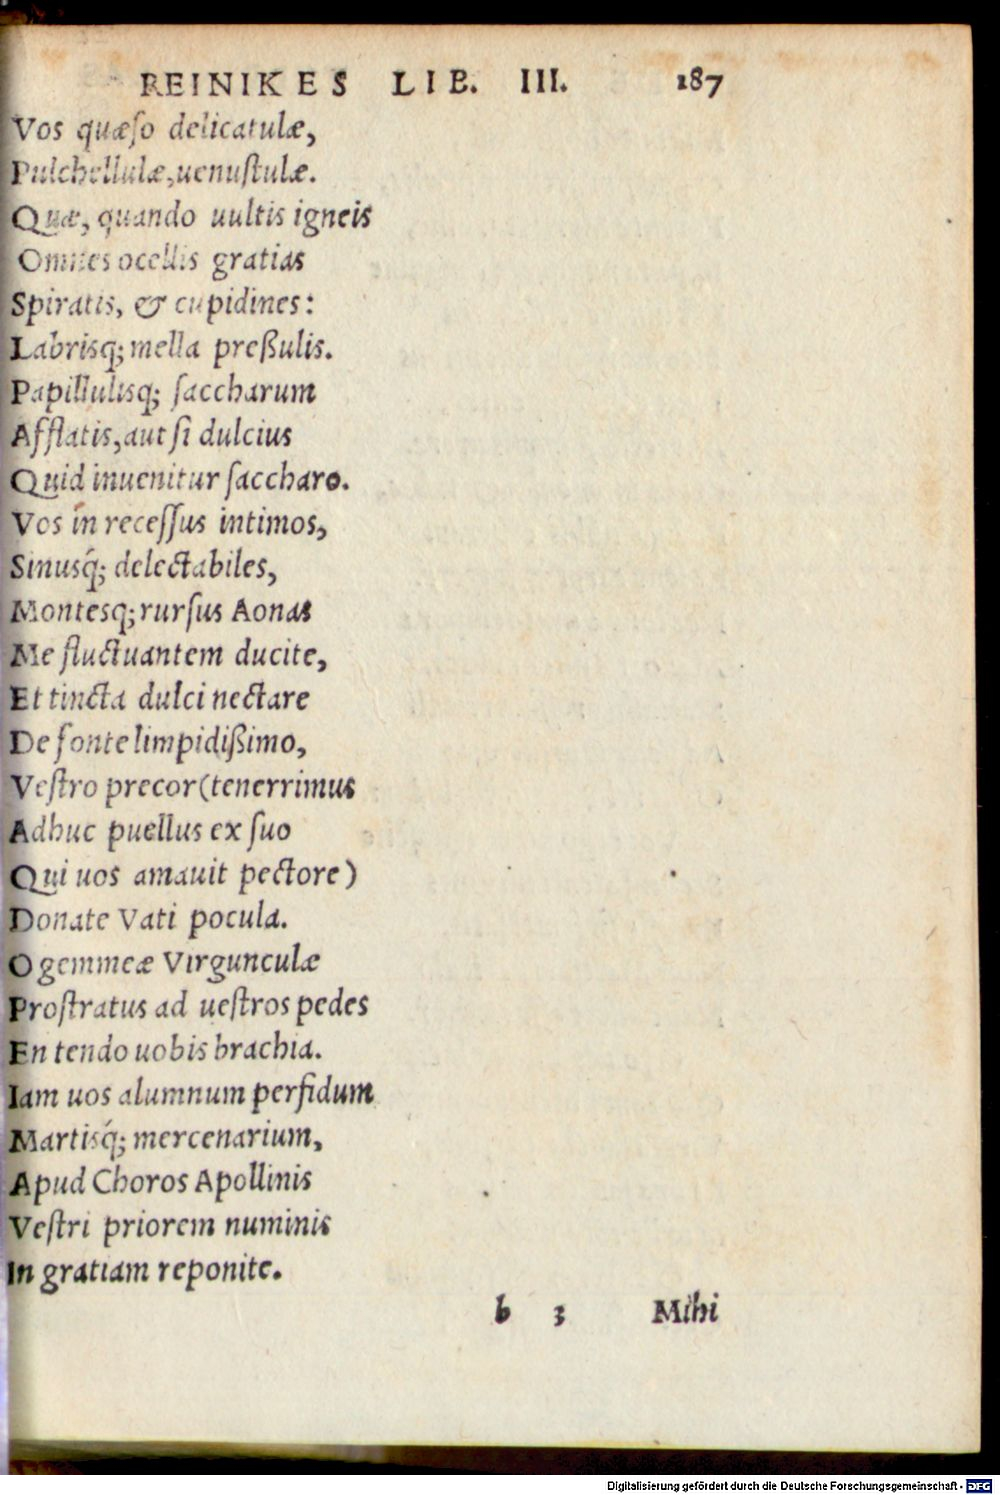 REINIKES LIB. III. 187
Vos quæſo delicatulæ,
Pulchellulæ, uenuſtulæ.
Quæ, quando uultis igneis
Omnes ocellis gratias
Spiratis, & cupidines:
Labrisq; mella preßulis.
Papillulisq; ſaccharum
Afflatis, aut ſi dulcius
Quid inuenitur ſaccharo.
Vos in receſſus intimos,
Sinusq́; delectabiles,
Montesq; rurſus Aonas
Me fluctuantem ducite,
Et tincta dulci nectare
De fonte limpidißimo,
Veſtro precor (tenerrimus
Adhuc puellus ex ſuo
Qui uos amauit pectore)
Donate Vati pocula.
O gemmeæ Virgunculæ
Proſtratus ad ueſtros pedes
En tendo uobis brachia.
Iam uos alumnum perfidum
Martisq́; mercenarium,
Apud Choros Apollinis
Veſtri priorem numinis
In gratiam reponite.
b 3 Mihi
Digitalisierung gefördert durch die Deutsche Forschungsgemeinschaft - DFG